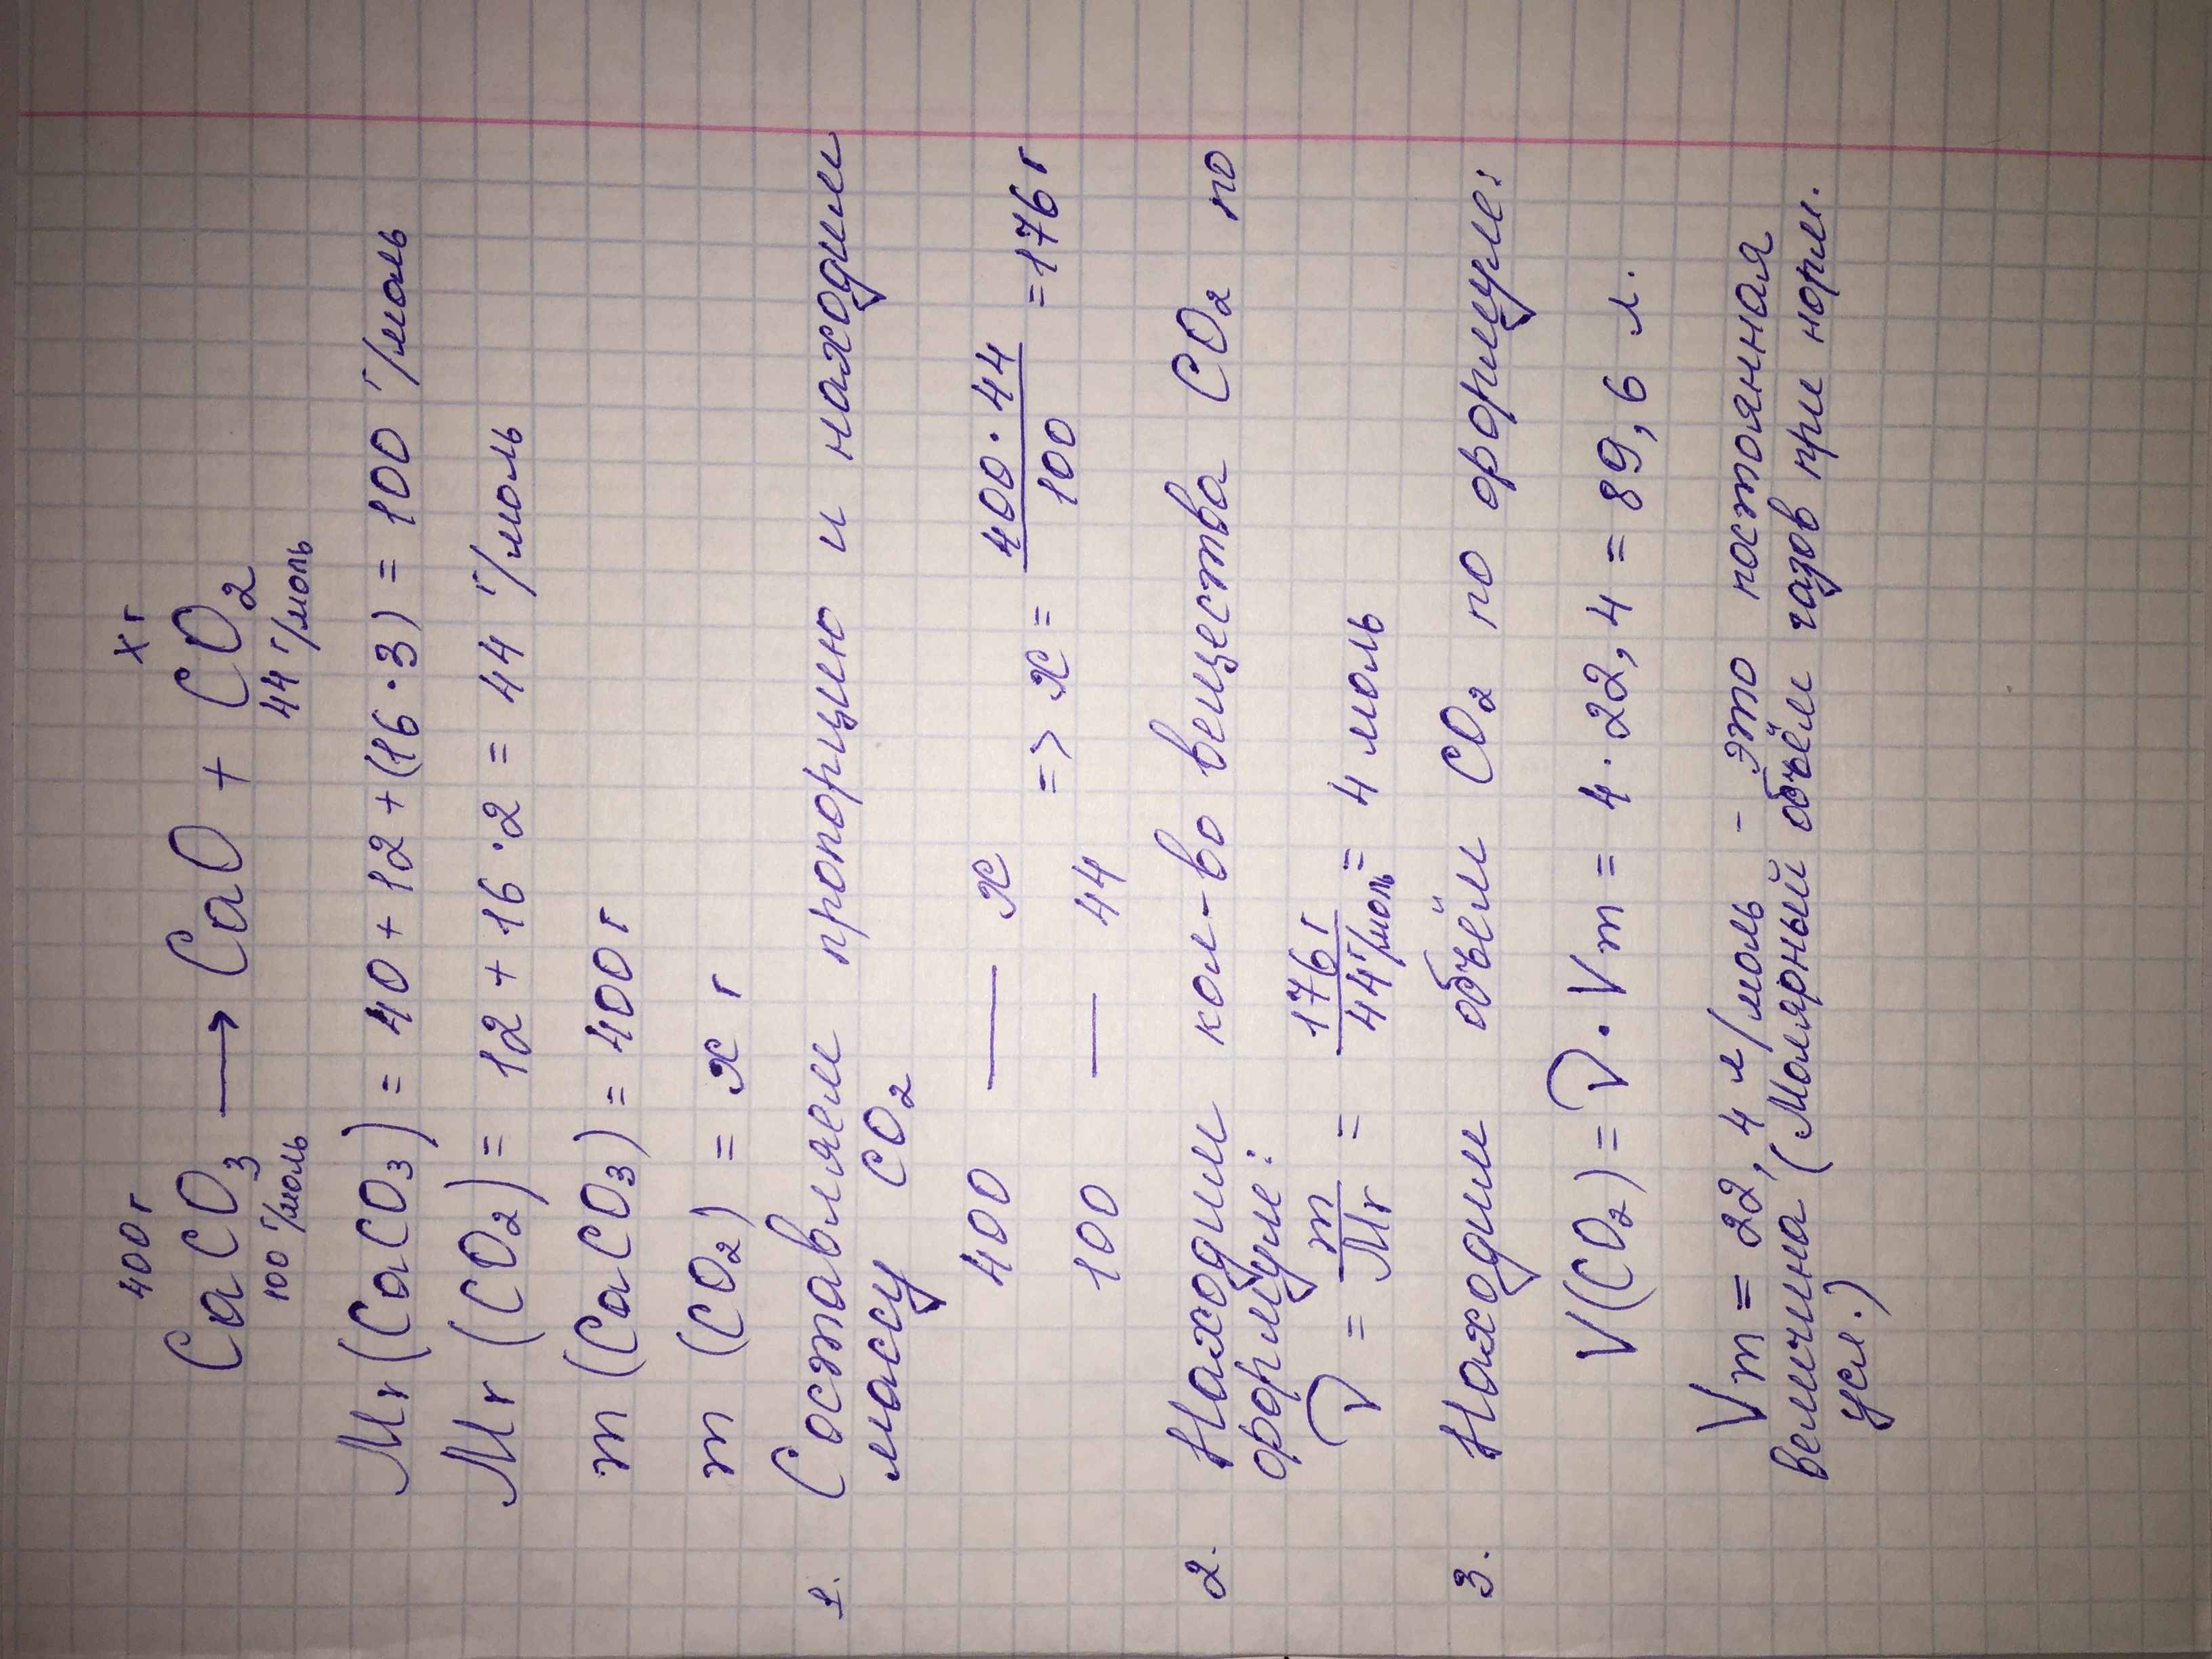 400 г х г
CaCO₃ → CaO + CO₂
100 г/моль 44 г/моль
Mr (CaCO₃) = 40 + 12 + (16 · 3) = 100 г/моль
Mr (CO₂) = 12 + 16 · 2 = 44 г/моль
m (CaCO₃) = 400 г
m (CO₂) = x г
1. Составляем пропорцию и находим
массу CO₂
400 — x
100 — 44 => x = 400 · 44 / 100 = 176 г
2. Находим кол-во вещества CO₂ по
формуле:
ν = m / Mr = 176 г / 44 г/моль = 4 моль
3. Находим объём CO₂ по формуле:
V(CO₂) = ν · Vm = 4 · 22,4 = 89,6 л.
Vm = 22,4 л/моль - это постоянная
величина (Молярный объём газов при норм.
усл.)